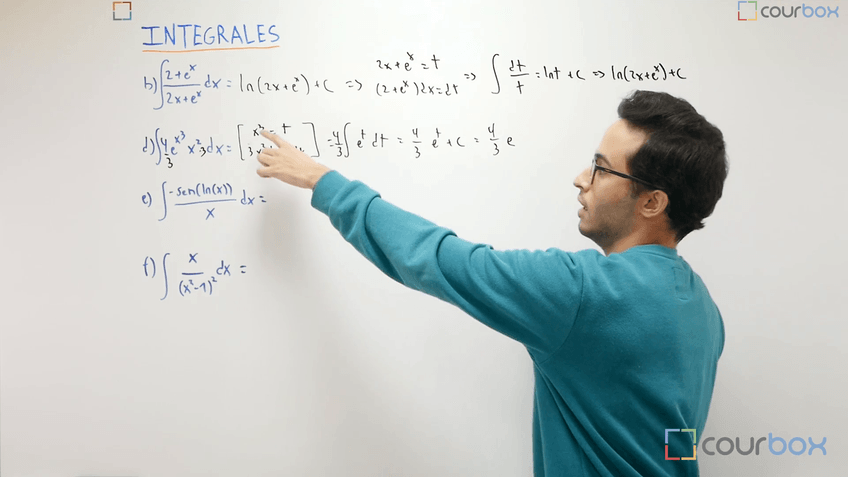 courbox
INTEGRALES
b) ∫ (2+e^x)/(2x+e^x) dx = ln(2x+e^x)+C ⇒ 2x+e^x = t
(2+e^x)dx = dt ⇒ ∫ dt/t = ln t + C ⇒ ln(2x+e^x)+C
d) ∫ 4/3 e^x³ x² · 3 dx = [ x³ = t
3x² ] = 4/3 ∫ e^t dt = 4/3 e^t + C = 4/3 e
e) ∫ -sen(ln(x))/x dx =
f) ∫ x/(x²-1)² dx =
courbox